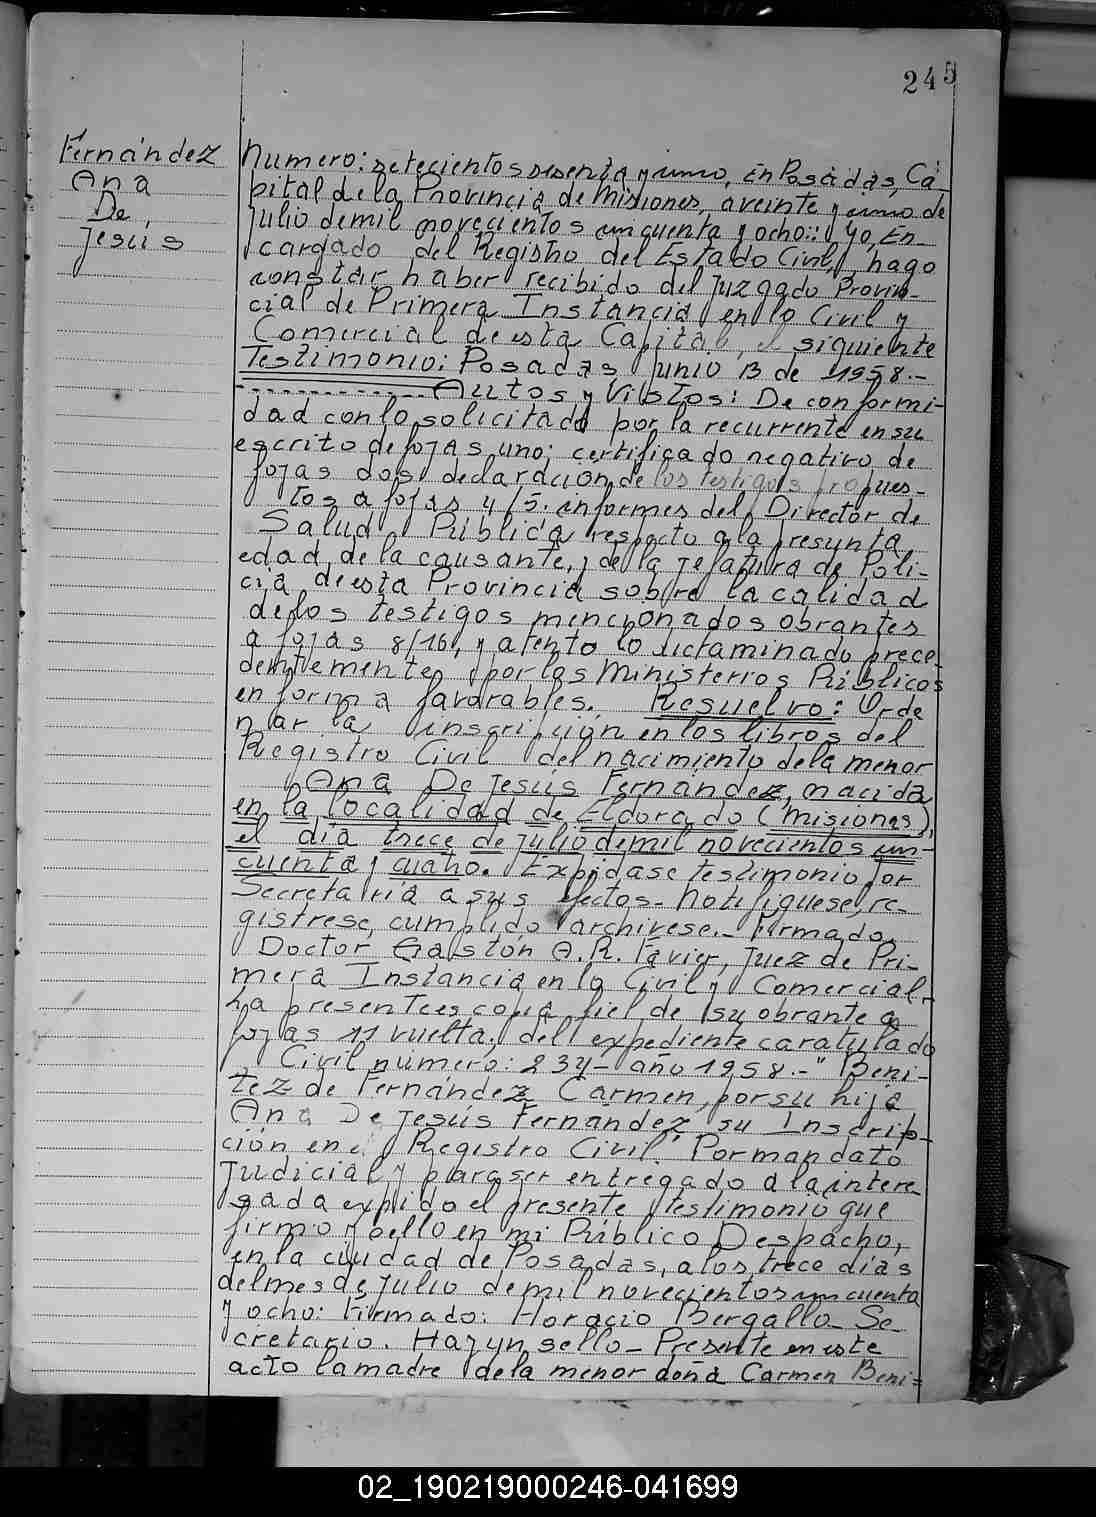 245
Fernández
Ana
De
Jesús
Numero: setecientos sesenta y uno, En Posadas, Ca-
pital de la Provincia de Misiones, a veinte y uno de
Julio de mil novecientos cincuenta y ocho:: Yo, En-
cargado del Registro del Estado Civil, hago
constar haber recibido del Juzgado Provin-
cial de Primera Instancia en lo Civil y
Comercial de esta Capital, el siguiente
Testimonio: Posadas Junio 13 de 1958.-
Autos y Vistos: De conformi-
dad con lo solicitado por la recurrente en su
escrito de fojas uno; certificado negativo de
fojas dos declaración de los testigos propues-
tos a fojas 4/5. informes del Director de
Salud Pública respecto a la presunta
edad de la causante, y de la Jefatura de Poli-
cia de esta Provincia sobre la calidad
de los testigos mencionados obrantes
a fojas 8/16, y atento lo dictaminado prece-
dentemente por los Ministerios Públicos
en forma favorables. Resuelvo: Orde
nar la inscripción en los libros del
Registro Civil del nacimiento de la menor
Ana De Jesús Fernández, nacida
en la localidad de Eldorado (Misiones),
el día trece de julio de mil novecientos cin-
cuenta y cuatro. Expidase testimonio por
Secretaría a sus efectos- Notifiquese, re-
gistrese, cumplido archivese.- Firmado
Doctor Gastón A. R. Tavier, Juez de Pri-
mera Instancia en lo Civil y Comercial.-
La presente es copia fiel de su obrante a
fojas 11 vuelta, del expediente caratulado
Civil número: 234- año 1958.- "Beni-
tez de Fernández Carmen, por su hija
Ana De Jesús Fernández, su Inscrip-
ción en el Registro Civil". Por mandato
Judicial y para ser entregado a la intere-
sada expido el presente testimonio que
firmo y sello en mi Público Despacho,
en la ciudad de Posadas, a los trece días
del mes de Julio de mil novecientos cincuenta
y ocho: Firmado: Horacio Bergallo- Se-
cretario. Hay un sello- Presente en este
acto la madre de la menor doña Carmen Beni=
02_190219000246-041699